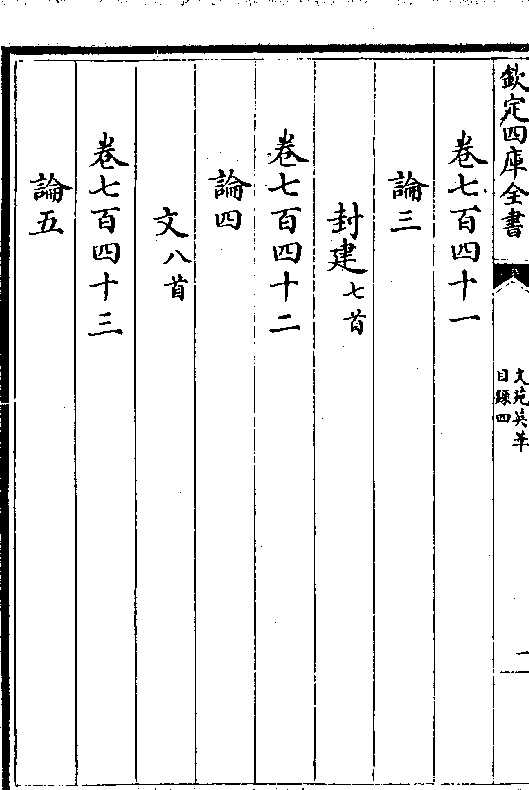 欽定四庫全書
文苑英華
目錄四
一
卷七百四十一
論三
封建七首
卷七百四十二
論四
文八首
卷七百四十三
論五